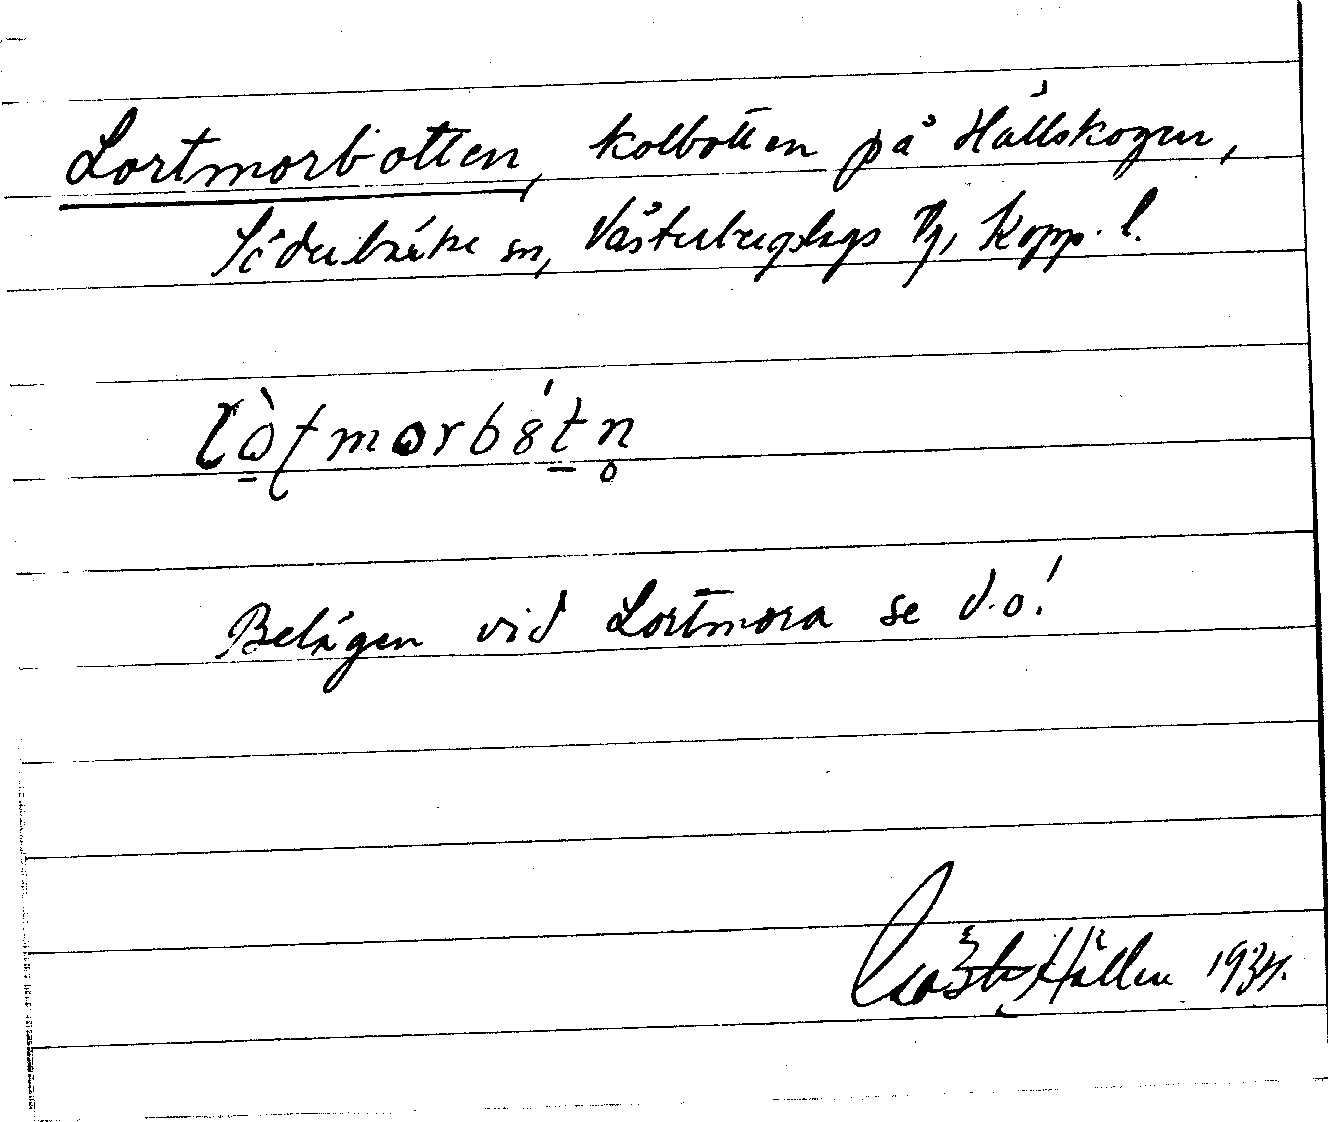 Lortmorbotten, kolbotten på Hållskogen,
Söderbärke sn, Västerbergslags tg, Kopp. l.
Belägen vid Lortmora se d.o!
Hållen 1934.